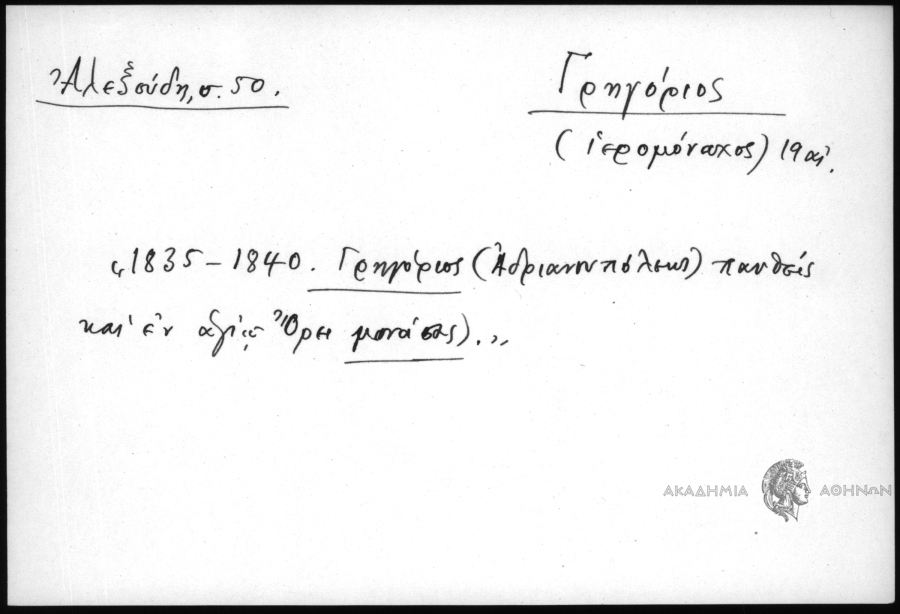 Ἀλεξούδη, σ. 50.
Γρηγόριος
(ἱερομόναχος) 19 αἰ.
"1835 – 1840. Γρηγόριος (Ἀδριανουπόλεως) παυθείς
καὶ ἐν ἁγίῳ Ὄρει μονάσας)."
ΑΚΑΔΗΜΙΑ ΑΘΗΝΩΝ